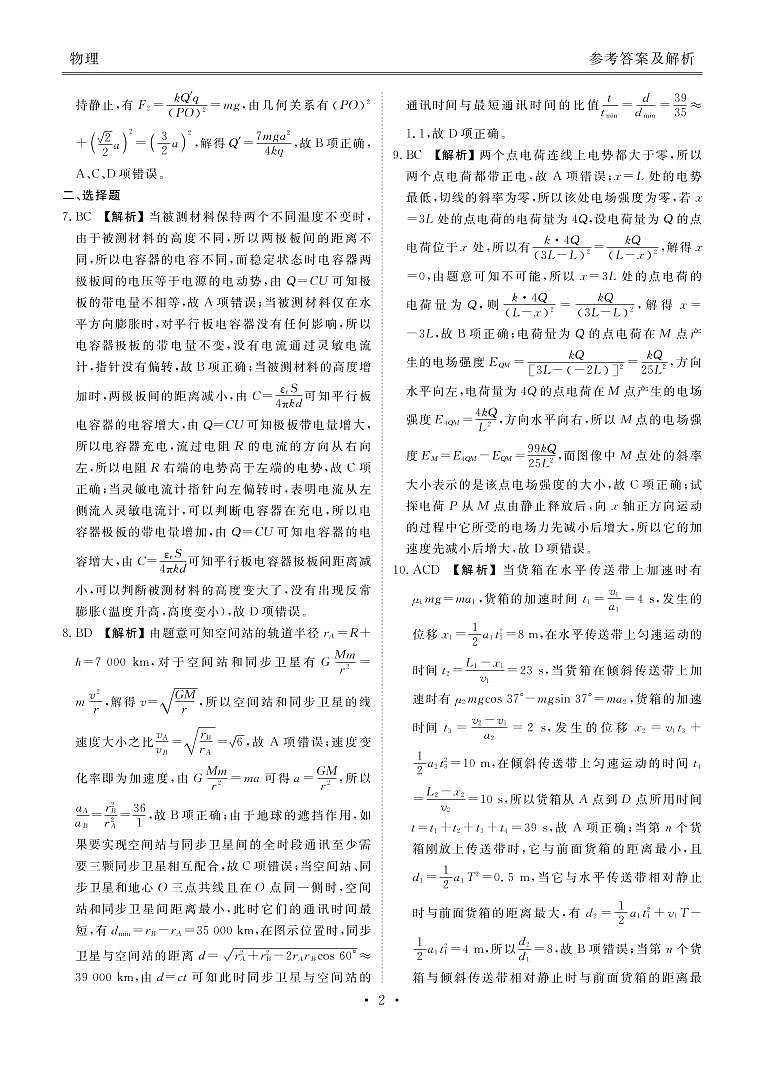 物理
参考答案及解析
持静止,有 F₂=kQ′q/(PO)²=mg,由几何关系有(PO)²
+(√2/2 a)²=(3/2 a)²,解得 Q′=7mga²/4kq,故 B 项正确,
A、C、D 项错误。
二、选择题
7. BC 【解析】当被测材料保持两个不同温度不变时,
由于被测材料的高度不同,所以两极板间的距离不
同,所以电容器的电容不同,而稳定状态时电容器两
极板间的电压等于电源的电动势,由 Q=CU 可知极
板的带电量不相等,故 A 项错误;当被测材料仅在水
平方向膨胀时,对平行板电容器没有任何影响,所以
电容器极板的带电量不变,没有电流通过灵敏电流
计,指针没有偏转,故 B 项正确;当被测材料的高度增
加时,两极板间的距离减小,由 C=εᵣS/4πkd 可知平行板
电容器的电容增大,由 Q=CU 可知极板带电量增大,
所以电容器充电,流过电阻 R 的电流的方向从右向
左,所以电阻 R 右端的电势高于左端的电势,故 C 项
正确;当灵敏电流计指针向左偏转时,表明电流从左
侧流入灵敏电流计,可以判断电容器在充电,所以电
容器极板的带电量增加,由 Q=CU 可知电容器的电
容增大,由 C=εᵣS/4πkd 可知平行板电容器极板间距离减
小,可以判断被测材料的高度变大了,没有出现反常
膨胀(温度升高,高度变小),故 D 项错误。
8. BD 【解析】由题意可知空间站的轨道半径 r_A=R+
h=7 000 km,对于空间站和同步卫星有 G Mm/r²=
m v²/r,解得 v=√(GM/r),所以空间站和同步卫星的线
速度大小之比 v_A/v_B=√(r_B/r_A)=√6,故 A 项错误;速度变
化率即为加速度,由 G Mm/r²=ma 可得 a=GM/r²,所以
a_A/a_B=r_B²/r_A²=36/1,故 B 项正确;由于地球的遮挡作用,如
果要实现空间站与同步卫星间的全时段通讯至少需
要三颗同步卫星相互配合,故 C 项错误;当空间站、同
步卫星和地心 O 三点共线且在 O 点同一侧时,空间
站和同步卫星间距离最小,此时它们的通讯时间最
短,有 d_min=r_B-r_A=35 000 km,在图示位置时,同步
卫星与空间站的距离 d=√(r_A²+r_B²-2r_A r_B cos 60°)≈
39 000 km,由 d=ct 可知此时同步卫星与空间站的
通讯时间与最短通讯时间的比值 t/t_min=d/d_min=39/35≈
1.1,故 D 项正确。
9. BC 【解析】两个点电荷连线上电势都大于零,所以
两个点电荷都带正电,故 A 项错误;x=L 处的电势
最低,切线的斜率为零,所以该处电场强度为零,若 x
=3L 处的点电荷的电荷量为 4Q,设电荷量为 Q 的点
电荷位于 x 处,所以有 k·4Q/(3L-L)²=kQ/(L-x)²,解得 x
=0,由题意可知不可能,所以 x=3L 处的点电荷的
电荷量为 Q,则 k·4Q/(L-x)²=kQ/(3L-L)²,解得 x=
-3L,故 B 项正确;电荷量为 Q 的点电荷在 M 点产
生的电场强度 E_QM=kQ/[3L-(-2L)]²=kQ/25L²,方向
水平向左,电荷量为 4Q 的点电荷在 M 点产生的电场
强度 E_4QM=4kQ/L²,方向水平向右,所以 M 点的电场强
度 E_M=E_4QM-E_QM=99kQ/25L²,而图像中 M 点处的斜率
大小表示的是该点电场强度的大小,故 C 项正确;试
探电荷 P 从 M 点由静止释放后,向 x 轴正方向运动
的过程中它所受的电场力先减小后增大,所以它的加
速度先减小后增大,故 D 项错误。
10. ACD 【解析】当货箱在水平传送带上加速时有
μ₁mg=ma₁,货箱的加速时间 t₁=v₁/a₁=4 s,发生的
位移 x₁=1/2 a₁t₁²=8 m,在水平传送带上匀速运动的
时间 t₂=(L₁-x₁)/v₁=23 s,当货箱在倾斜传送带上加
速时有 μ₂mgcos 37°-mgsin 37°=ma₂,货箱的加速
时间 t₃=(v₂-v₁)/a₂=2 s,发生的位移 x₂=v₁t₃+
1/2 a₂t₃²=10 m,在倾斜传送带上匀速运动的时间 t₄
=(L₂-x₂)/v₂=10 s,所以货箱从 A 点到 D 点所用时间
t=t₁+t₂+t₃+t₄=39 s,故 A 项正确;当第 n 个货
箱刚放上传送带时,它与前面货箱的距离最小,且
d₁=1/2 a₁T²=0.5 m,当它与水平传送带相对静止
时与前面货箱的距离最大,有 d₂=1/2 a₁t₁²+v₁T-
1/2 a₁t₁²=4 m,所以 d₂/d₁=8,故 B 项错误;当第 n 个货
箱与倾斜传送带相对静止时与前面货箱的距离最
· 2 ·